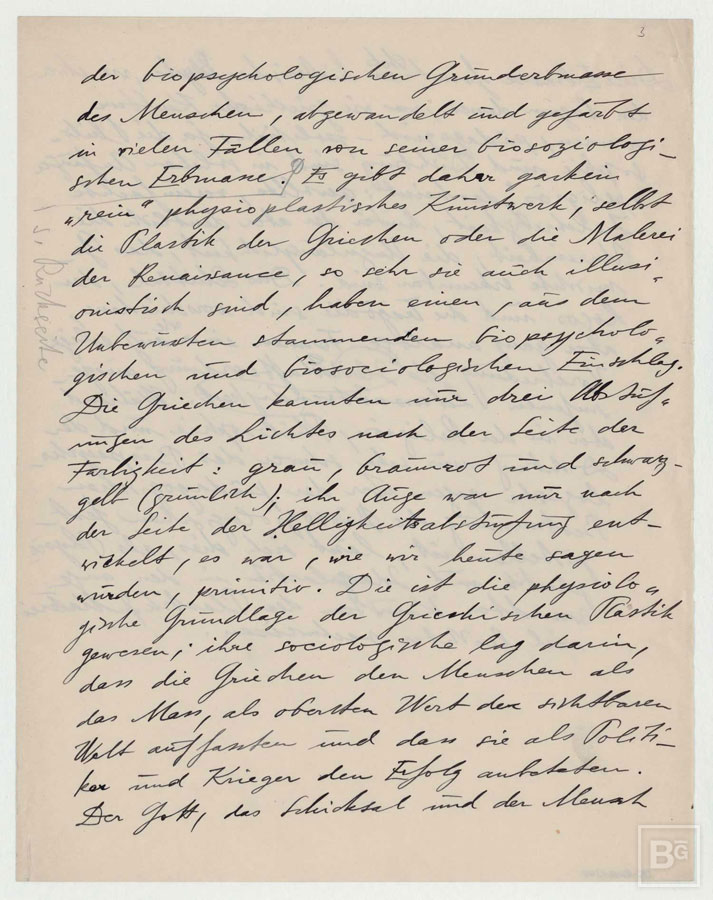 3
der biopsychologischen Grunderbmasse
des Menschen, abgewandelt und gefärbt
in vielen Fällen von seiner biosoziologi-
schen Erbmasse. Es gibt daher gar kein
„rein“ physioplastisches Kunstwerk; selbst
die Plastik der Griechen oder die Malerei
der Renaissance, so sehr sie auch illusi-
onistisch sind, haben einen, aus dem
Unbewussten stammenden biopsycholo-
gischen und biosociologischen Einschlag.
Die Griechen kannten nur drei Abstuf-
ungen des Lichtes nach der Seite der
Farbigkeit: grau, braunrot und schwarz-
gelb (grünlich); ihr Auge war nur nach
der Seite der Helligkeitsabstufung ent-
wickelt, es war, wie wir heute sagen
würden, primitiv. Die ist die physiolo-
gische Grundlage der Griechischen Plastik
gewesen; ihre sociologische lag darin,
dass die Griechen den Menschen als
das Mass, als obersten Wert der sichtbaren
Welt auffassten und dass sie als Politi-
ker und Krieger den Erfolg anbeteten.
Der Gott, das Schicksal und der Mensch
s. Rückseite
BG